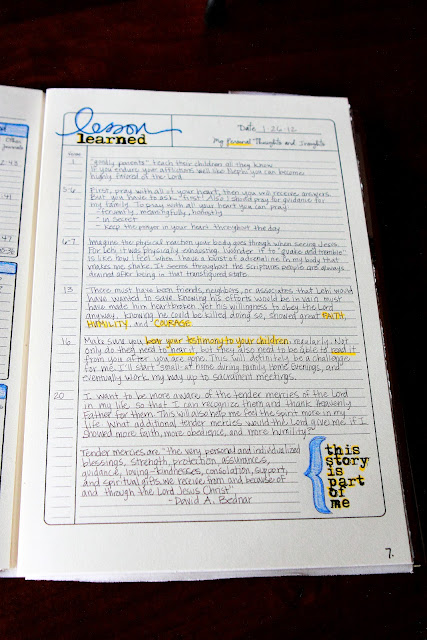 Other
journals
lesson
learned
Date 1-26-12
My Personal Thoughts and Insights
Verse
1
"goodly parents" teach their children all they know
If you endure your afflictions well like Nephi you can become
highly favored of the Lord.
5-6
First, pray with all of your heart, then you will receive answers.
But you have to ask first! Also I should pray for guidance for
my family. To pray with all your heart you can pray:
- fervently, meaningfully, honestly
- in secret
- keep the prayer in your heart throughout the day
6-7
Imagine the physical reaction your body goes through when seeing Jesus.
For Lehi it was physically exhausting. I wonder if to "quake and tremble"
is like how I feel when I have a burst of adrenaline in my body that
makes me shake. It seems throughout the scriptures people are always
drained after being in that transfigured state.
13
There must have been friends, neighbors, or associates that Lehi would
have wanted to save. Knowing his efforts would be in vain must
have made him heartbroken. Yet his willingness to obey the Lord
anyway, knowing he could be killed doing so, showed great FAITH,
HUMILITY, and COURAGE.
16
Make sure you bear your testimony to your children regularly. Not
only do they need to hear it, but they also need to be able to read it
from you after you are gone. This will definitely be a challenge
for me. I'll start small-at home during family home evenings, and
eventually work my way up to sacrament meetings.
20
I want to be more aware of the tender mercies of the Lord
in my life, so that I can recognize them and thank Heavenly
Father for them. This will also help me feel the spirit more in my
life. What additional tender mercies would the Lord give me if I
showed more faith, more obedience, and more humility?
Tender mercies are "the very personal and individualized
blessings, strength, protection, assurances,
guidance, loving-kindnesses, consolation, support,
and spiritual gifts we receive from and because of
and through the Lord Jesus Christ"
- David A. Bednar
this
story
is
part
of
me
7.